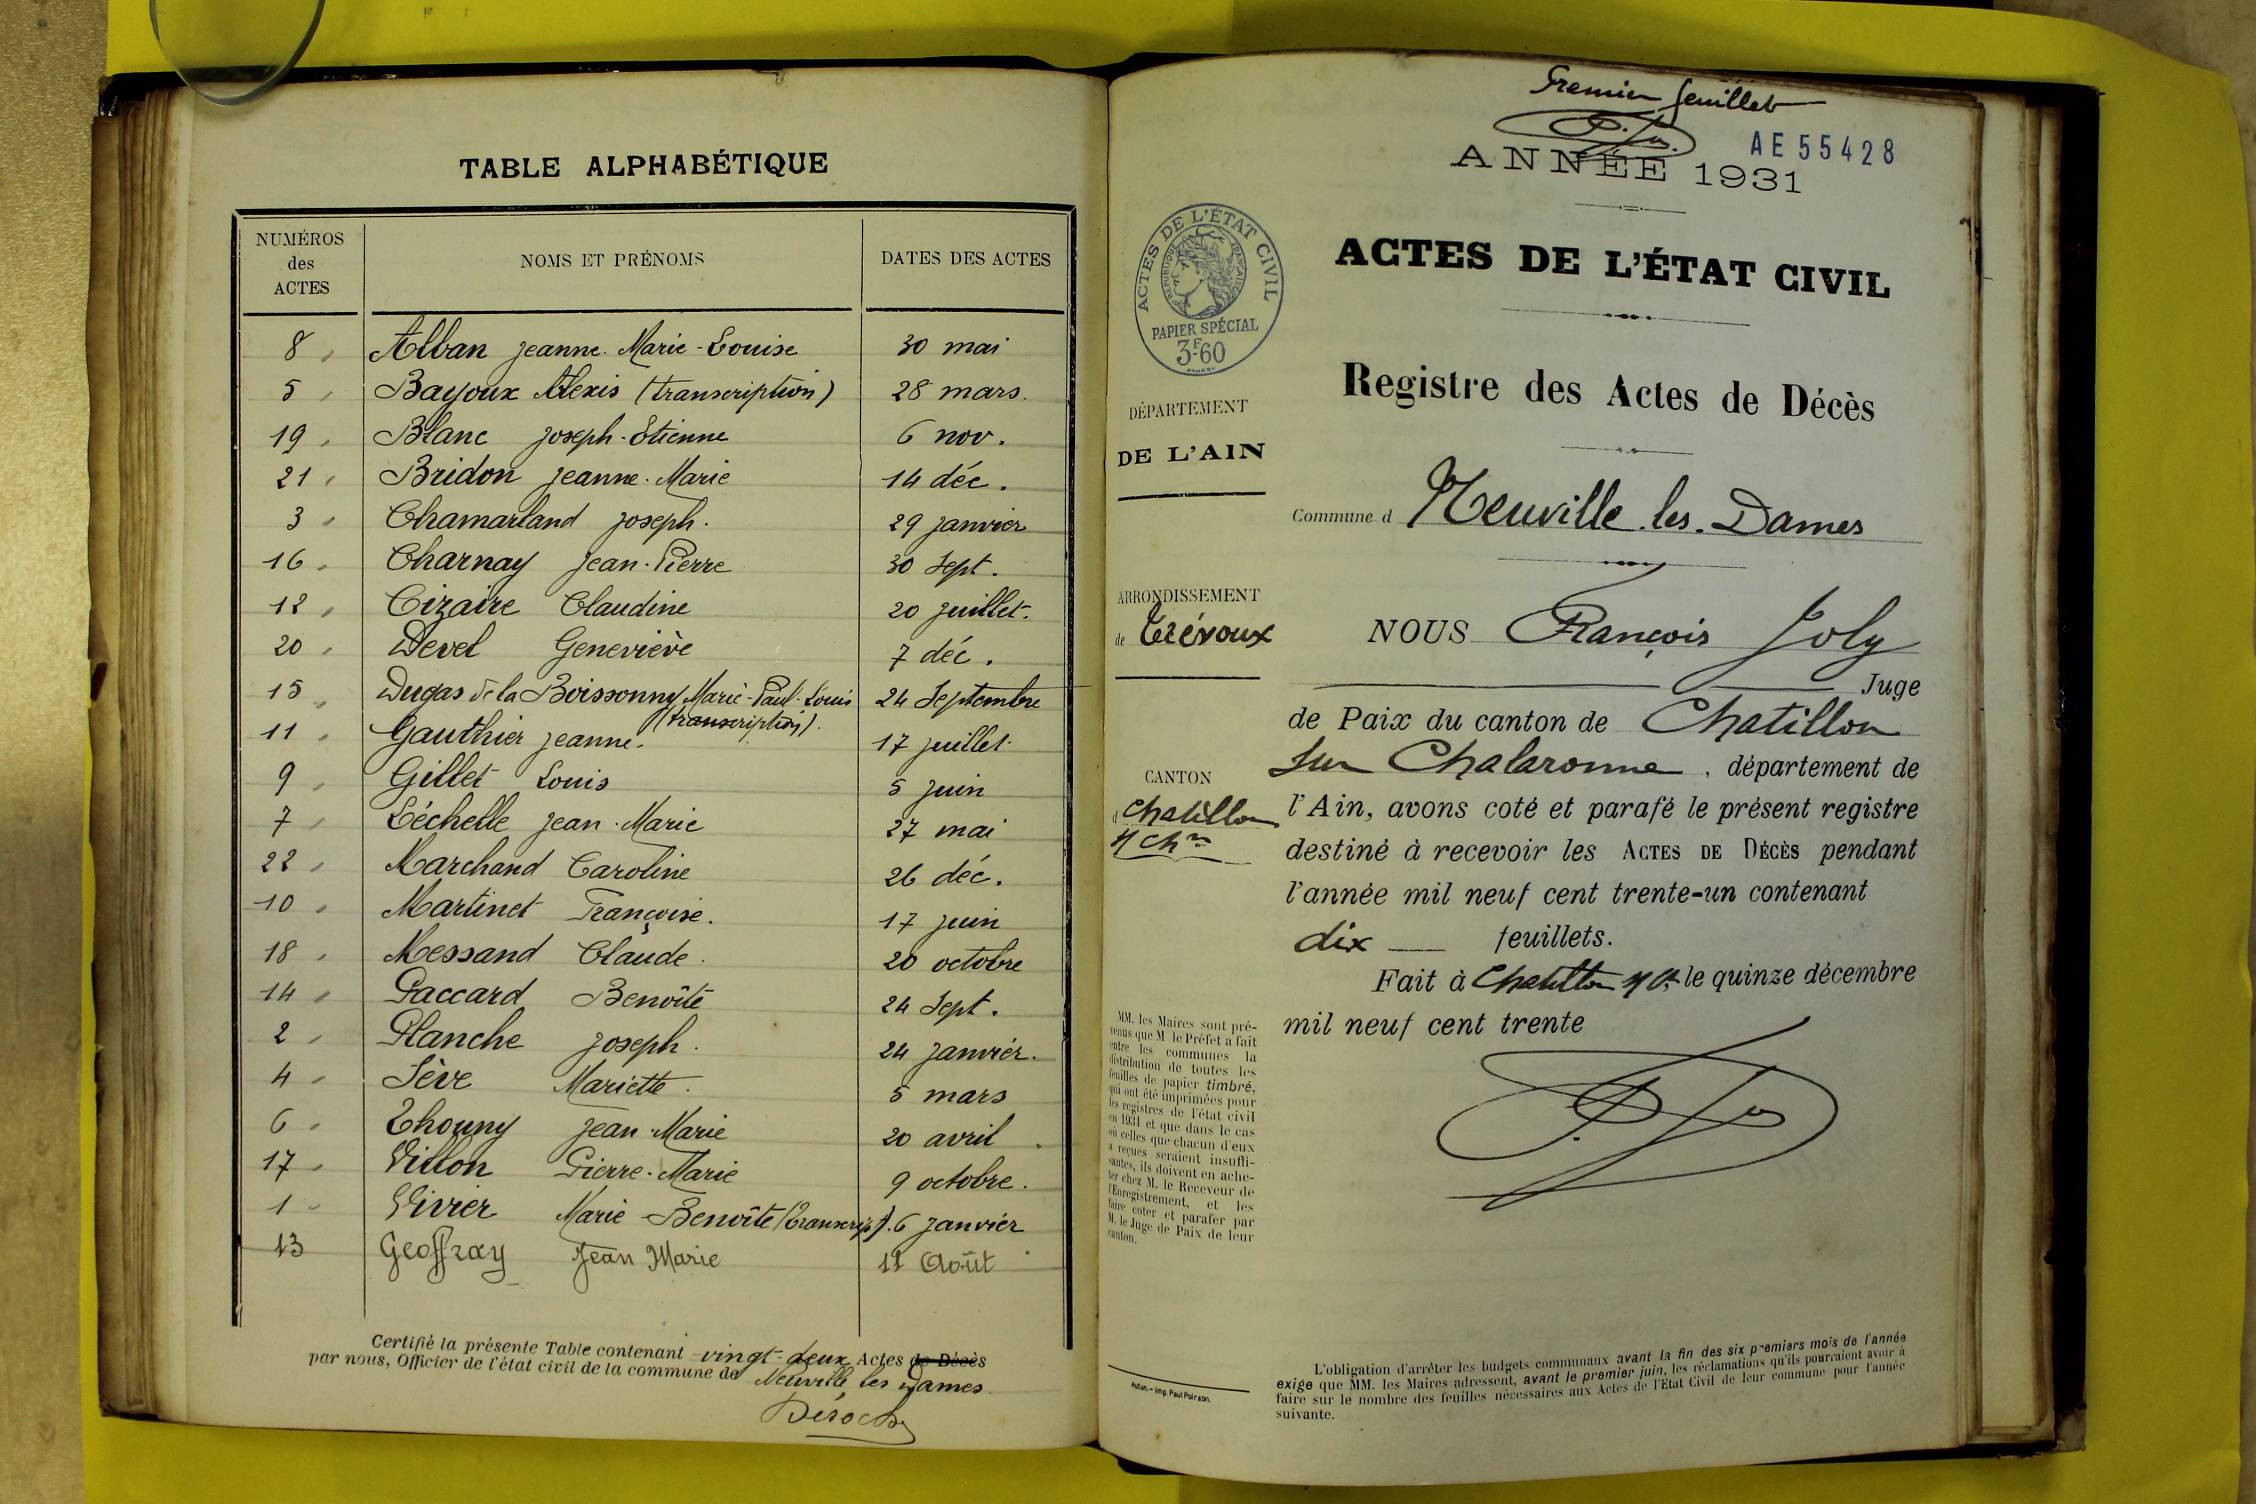 TABLE ALPHABÉTIQUE
NUMÉROS des ACTES NOMS ET PRÉNOMS DATES DES ACTES
8 Alban Jeanne Marie-Louise 30 mai
5 Bayoux Alexis (transcription) 28 mars.
19 Blanc Joseph-Etienne 6 nov.
21 Bridon Jeanne-Marie 14 déc.
3 Chamarland Joseph. 29 janvier
16 Charnay Jean-Pierre 30 Sept.
12 Cizaire Claudine 20 juillet.
20 Devel Geneviève 7 déc.
15 Dugas de la Boissonny Marie-Paul-Louis 24 Septembre
(transcription).
11 Gauthier Jeanne. 17 juillet
9 Gillet Louis 5 juin
7 Léchelle Jean-Marie 27 mai
22 Marchand Caroline 26 déc.
10 Martinet Françoise. 17 juin
18 Messand Claude. 20 octobre
14 Paccard Benoîte 24 Sept.
2 Planche Joseph. 24 janvier.
4 Sève Mariette. 5 mars
6 Thouny Jean-Marie 20 avril
17 Villon Pierre-Marie 9 octobre.
1 Vivier Marie-Benoîte (transcript). 6 janvier
13 Geoffray Jean Marie 11 Août
Certifié la présente Table contenant vingt-deux Actes de Décès
par nous, Officier de l'état civil de la commune de Neuville les Dames
Premier feuillet
AE 55428
ANNÉE 1931
ACTES DE L'ÉTAT CIVIL
RÉPUBLIQUE FRANÇAISE
PAPIER SPÉCIAL
3F60
ACTES DE L'ÉTAT CIVIL
Registre des Actes de Décès
DÉPARTEMENT
DE L'AIN
Commune d Neuville-les-Dames
ARRONDISSEMENT
de Trévoux
CANTON
d Chatillon
s/ Chne
NOUS François Joly
Juge
de Paix du canton de Chatillon
sur Chalaronne, département de
l'Ain, avons coté et parafé le présent registre
destiné à recevoir les ACTES DE DÉCÈS pendant
l'année mil neuf cent trente-un contenant
dix feuillets.
Fait à Chatillon s/ C. le quinze décembre
mil neuf cent trente
MM. les Maires sont pré-
tenus que M le Préfet a fait
entre les communes la
distribution de toutes les
feuilles de papier timbré,
qui ont été imprimées pour
les registres de l'état civil
en 1931 et que dans le cas
où celles que chacun d'eux
a reçues seraient insuffi-
santes, ils doivent en ache-
ter chez M. le Receveur de
l'Enregistrement, et les
faire coter et parafer par
M. le Juge de Paix de leur
canton.
Autun. – Imp. Paul Poirson.
L'obligation d'arrêter les budgets communaux avant la fin des six premiers mois de l'année
exige que MM. les Maires adressent, avant le premier juin, les réclamations qu'ils pourraient avoir à
faire sur le nombre des feuilles nécessaires aux Actes de l'Etat Civil de leur commune pour l'année
suivante.